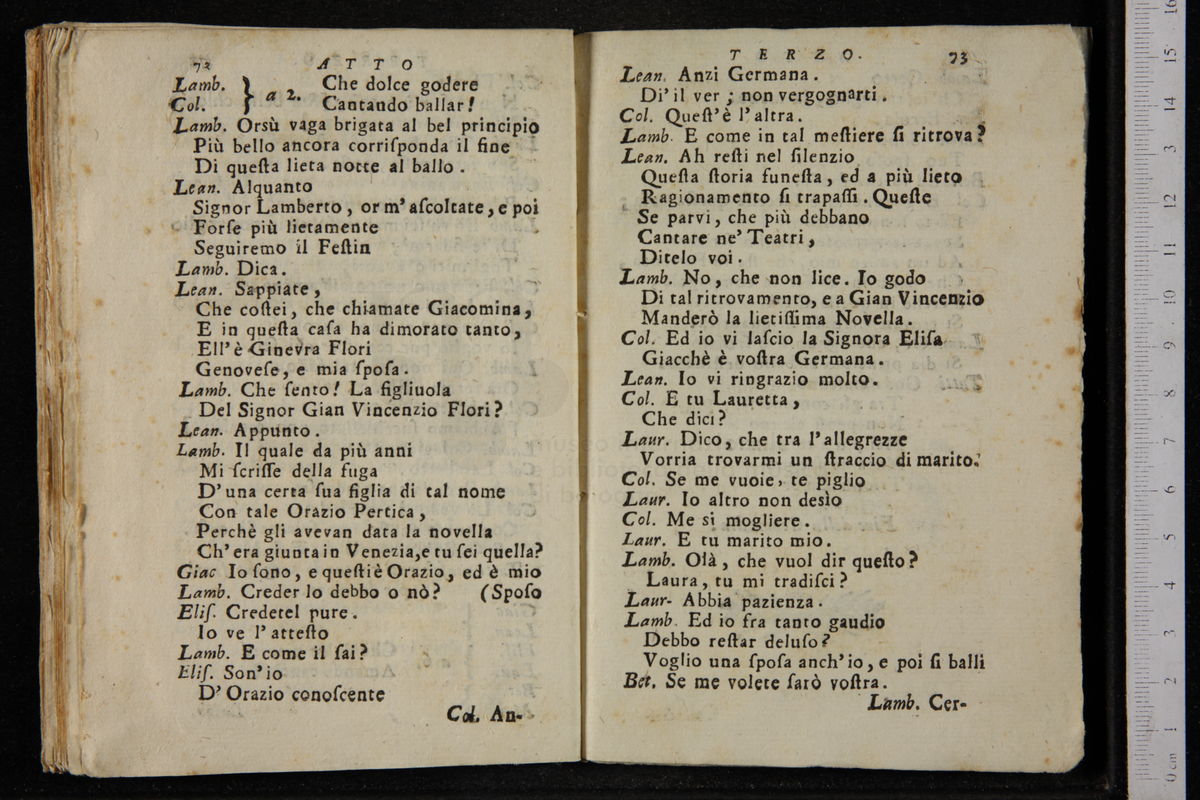 72 ATTO
Lamb. } a 2. Che dolce godere
Col. } Cantando ballar!
Lamb. Orsù vaga brigata al bel principio
Più bello ancora corriſponda il fine
Di queſta lieta notte al ballo.
Lean. Alquanto
Signor Lamberto, or m'aſcoltate, e poi
Forſe più lietamente
Seguiremo il Feſtin
Lamb. Dica.
Lean. Sappiate,
Che coſtei, che chiamate Giacomina,
E in queſta caſa ha dimorato tanto,
Ell'è Ginevra Flori
Genoveſe, e mia ſpoſa.
Lamb. Che ſento! La figliuola
Del Signor Gian Vincenzio Flori?
Lean. Appunto.
Lamb. Il quale da più anni
Mi ſcriſſe della fuga
D'una certa ſua figlia di tal nome
Con tale Orazio Pertica,
Perchè gli avevan data la novella
Ch'era giunta in Venezia, e tu ſei quella?
Giac Io ſono, e queſti è Orazio, ed è mio
Lamb. Creder lo debbo o nò? (Spoſo
Eliſ. Credetel pure.
Io ve l'atteſto
Lamb. E come il ſai?
Eliſ. Son'io
D'Orazio conoſcente
Col. An-
TERZO. 73
Lean. Anzi Germana.
Di'il ver; non vergognarti.
Col. Queſt'è l'altra.
Lamb. E come in tal meſtiere ſi ritrova?
Lean. Ah reſti nel ſilenzio
Queſta ſtoria funeſta, ed a più lieto
Ragionamento ſi trapaſſi. Queſte
Se parvi, che più debbano
Cantare ne' Teatri,
Ditelo voi.
Lamb. No, che non lice. Io godo
Di tal ritrovamento, e a Gian Vincenzio
Manderò la lietiſſima Novella.
Col. Ed io vi laſcio la Signora Eliſa
Giacchè è voſtra Germana.
Lean. Io vi ringrazio molto.
Col. E tu Lauretta,
Che dici?
Laur. Dico, che tra l'allegrezze
Vorria trovarmi un ſtraccio di marito.
Col. Se me vuoie, te piglio
Laur. Io altro non desìo
Col. Me si mogliere.
Laur. E tu marito mio.
Lamb. Olà, che vuol dir queſto?
Laura, tu mi tradiſci?
Laur- Abbia pazienza.
Lamb. Ed io fra tanto gaudio
Debbo reſtar deluſo?
Voglio una ſpoſa anch'io, e poi ſi balli
Bet. Se me volete ſarò voſtra.
Lamb. Cer-